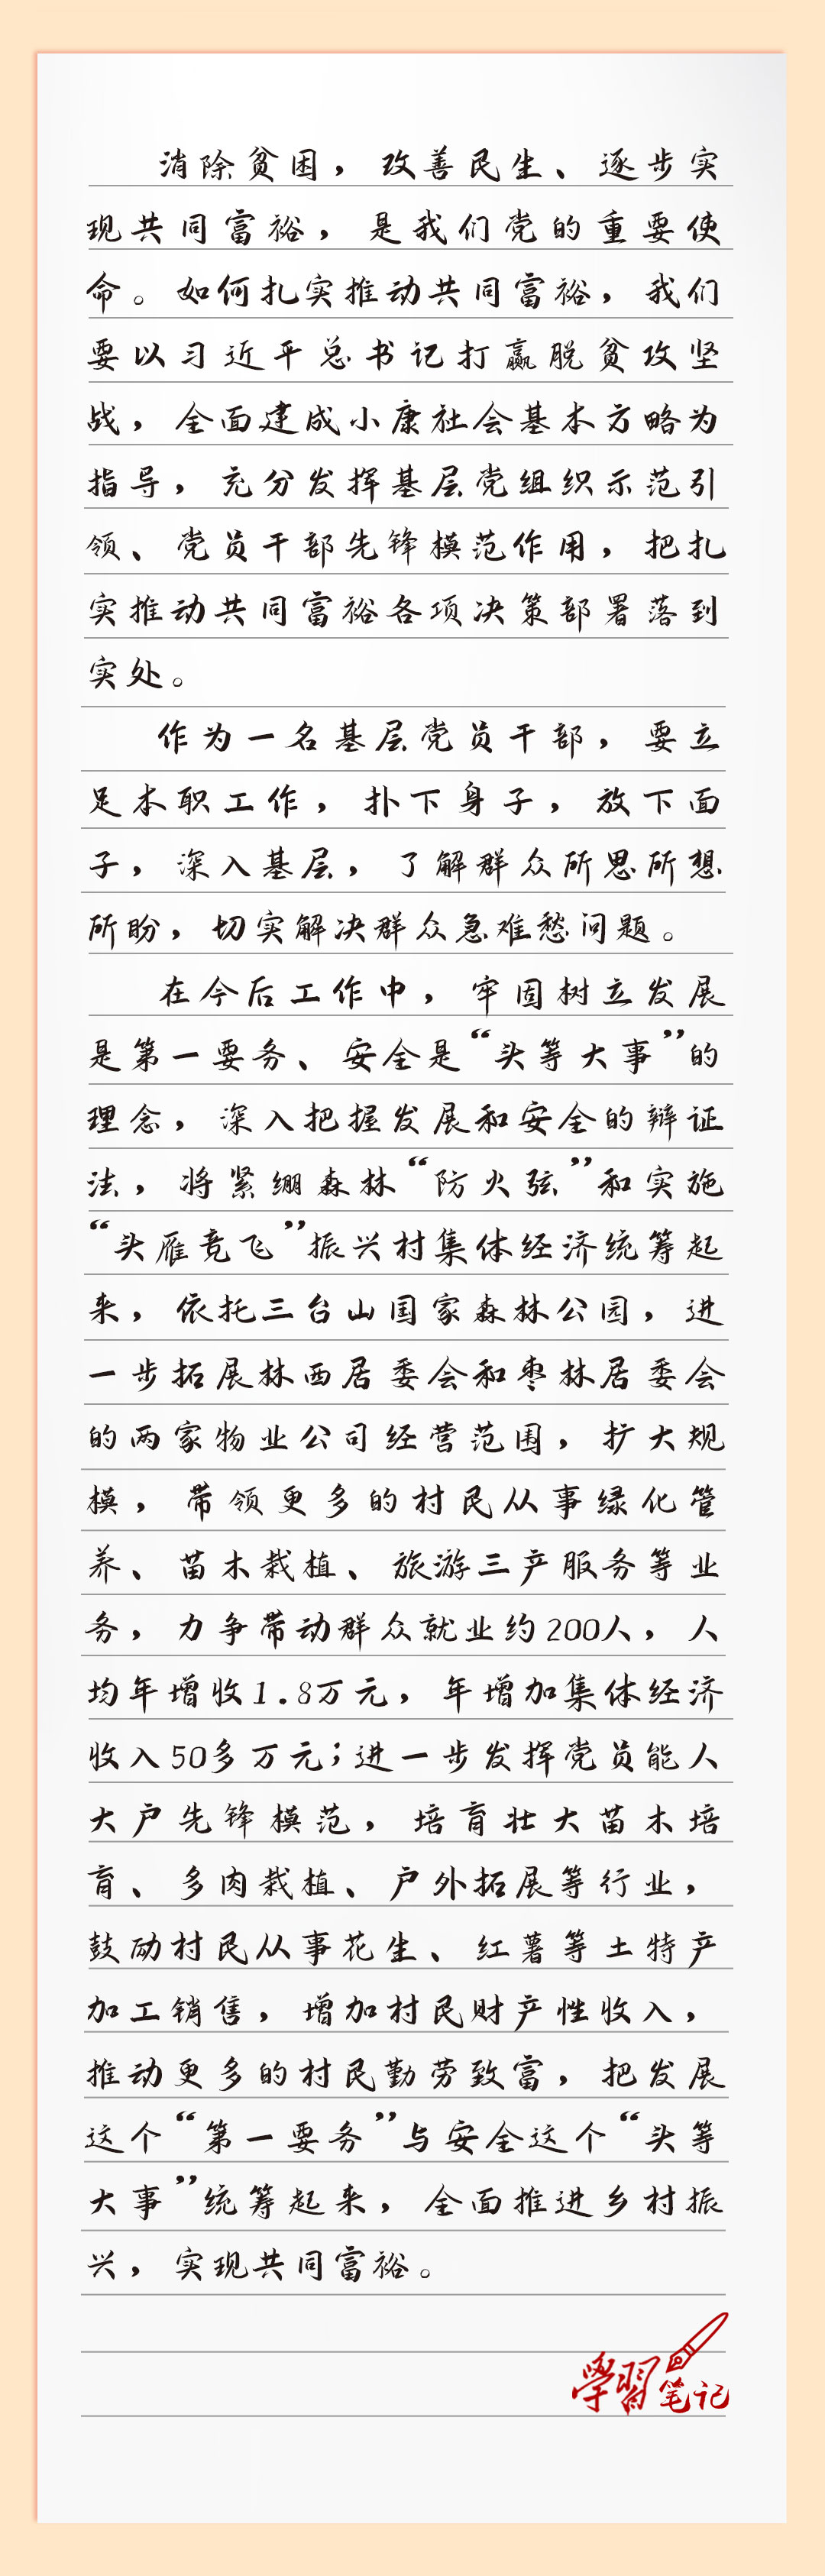 消除贫困，改善民生、逐步实
现共同富裕，是我们党的重要使
命。如何扎实推动共同富裕，我们
要以习近平总书记打赢脱贫攻坚
战，全面建成小康社会基本方略为
指导，充分发挥基层党组织示范引
领、党员干部先锋模范作用，把扎
实推动共同富裕各项决策部署落到
实处。
作为一名基层党员干部，要立
足本职工作，扑下身子，放下面
子，深入基层，了解群众所思所想
所盼，切实解决群众急难愁问题。
在今后工作中，牢固树立发展
是第一要务、安全是“头等大事”的
理念，深入把握发展和安全的辩证
法，将紧绷森林“防火弦”和实施
“头雁竞飞”振兴村集体经济统筹起
来，依托三台山国家森林公园，进
一步拓展林西居委会和枣林居委会
的两家物业公司经营范围，扩大规
模，带领更多的村民从事绿化管
养、苗木栽植、旅游三产服务等业
务，力争带动群众就业约200人，人
均年增收1.8万元，年增加集体经济
收入50多万元；进一步发挥党员能人
大户先锋模范，培育壮大苗木培
育、多肉栽植、户外拓展等行业，
鼓励村民从事花生、红薯等土特产
加工销售，增加村民财产性收入，
推动更多的村民勤劳致富，把发展
这个“第一要务”与安全这个“头等
大事”统筹起来，全面推进乡村振
兴，实现共同富裕。
學習笔记